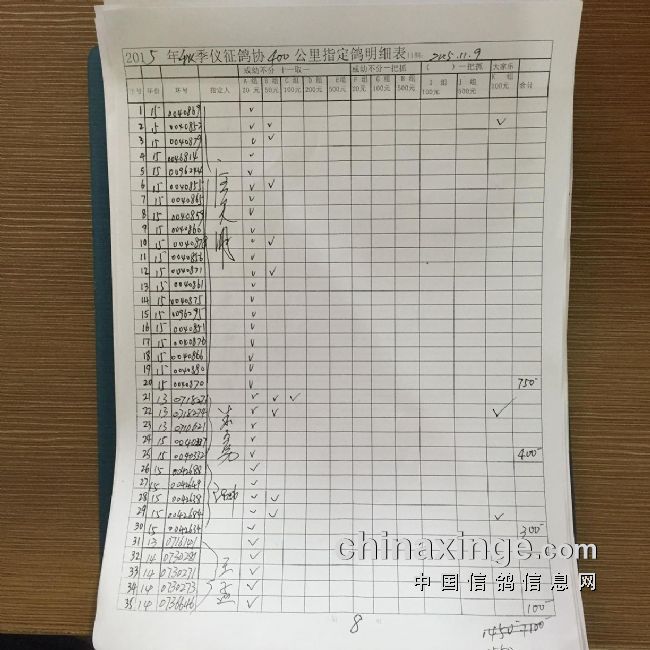 2015年秋季仪征鸽协400公里指定鸽明细表 日期: 2015.11.9
成幼不分 一取一 成幼不分一把抓 ( )一把抓 大家乐
序号 年份 环号 指定人 A 组 20 元 B 组 50元 C 组 100元 D 组 200元 E组 500元 F组 20元 G 组 100元 H 组 500元 I 组 100元 J 组 500元 K 组 100元 合计
1 15 0040869 ✓
2 15 ✓ ✓ ✓
3 15 0040879 ✓ ✓
4 15 ✓
5 15 ✓
6 15 0040855 ✓ ✓
7 15 0040865 ✓
8 15 0040859 ✓
9 15 0040860 ✓
10 15 0040878 ✓ ✓
11 15 0040856 ✓
12 15 0040871 ✓ ✓
13 15 0040861 ✓
14 15 0040875 ✓
15 15 0096295 ✓
16 15 0040851 ✓
17 15 0040876 ✓
18 15 0040866 ✓
19 15 0040880 ✓
20 15 0040870 ✓ 750-
21 13 ✓ ✓ ✓
22 13 0718274 ✓ ✓ ✓
23 13 0710621 ✓
24 15 ✓
25 15 ✓ 400-
26 15 0042688 ✓
27 15 0042649 ✓
28 15 0042638 ✓ ✓
29 15 0042684 ✓ ✓ ✓
30 15 0042634 ✓ 300-
31 13 0716101 ✓
32 14 0730281 ✓
33 14 0730271 ✓
34 14 0730273 ✓
35 14 0736646 ✓ 100-
8
chinaxinge.com
中国信鸽信息网